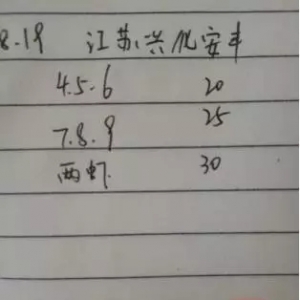 8.19 江苏兴化安丰
4.5.6 20
7.8.9 25
两虾 30